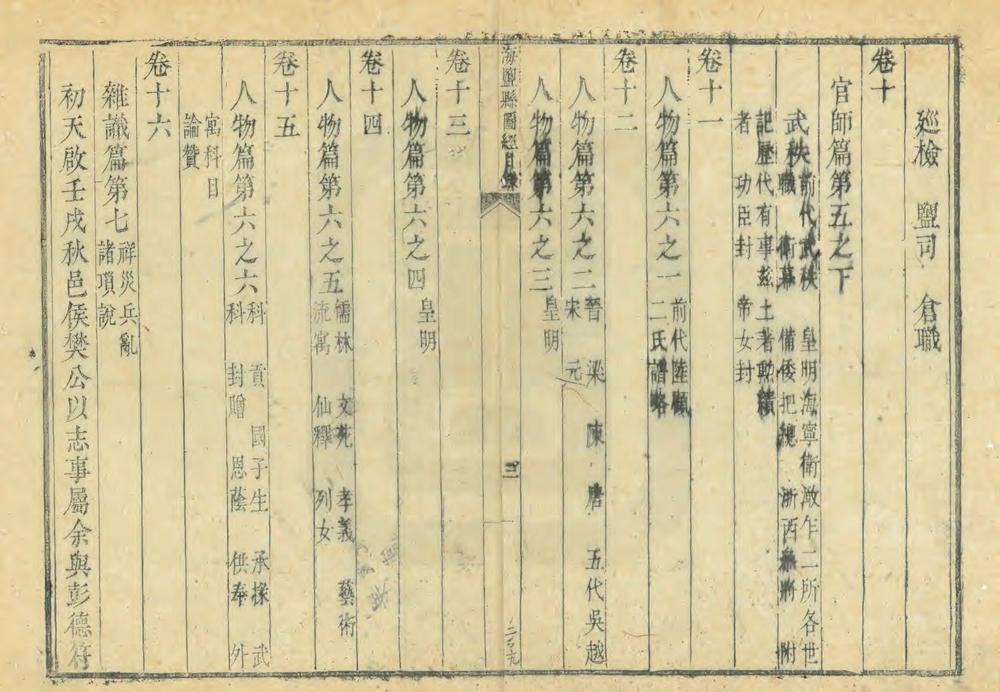 巡檢　鹽司　倉職
卷十
官師篇第五之下
武秩前代武秩　皇明海寧衛澉乍二所各世
職　衛幕　備倭把總　浙西叅將　附
記歷代有事兹土著勲績
者　功臣封　帝女封
卷十一
人物篇第六之一前代陸顧
二氏譜略
卷十二
人物篇第六之二晉　梁　陳　唐　五代吳越
宋　元
人物篇第六之三皇明
海鹽縣圖經目錄
三
卷十三
人物篇第六之四皇明
卷十四
人物篇第六之五儒林　文苑　孝義　藝術
流寓　仙釋　列女
卷十五
人物篇第六之六科　貢　國子生　承掾　武
科　封贈　恩蔭　供奉　外
寓科目
論贊
卷十六
雜識篇第七祥災兵亂
諸瑣說
初天啟壬戌秋邑侯樊公以志事屬余與彭德符